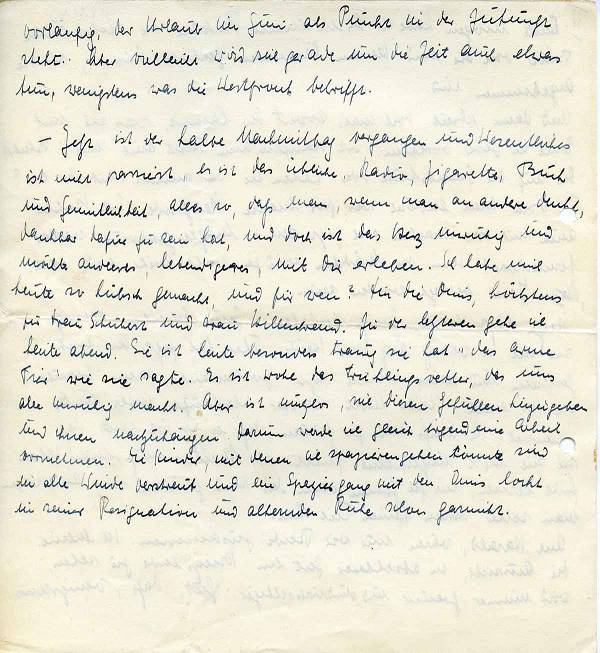 vorläufig, der Urlaub im Juni als Punkt in der Zukunft
steht. Aber vielleicht wird sich gerade um die Zeit auch etwas
tun, wenigstens was die Westfront betrifft.
– Jetzt ist der halbe Nachmittag vergangen und Wesentliches
ist nicht passiert es ist das übliche, Radio, Zigarette, Buch
und Gemütlichkeit, alles so, daß man, wenn man an andere denkt,
dankbar dafür zu sein hat, und doch ist das Herz unruhig und
möchte anderes, lebendigeres, mit dir erleben. Ich habe mich
heute so hübsch gemacht, und für wen? Für die Omis, höchstens
für Frau Schubert und Frau Hillenbrand. Zu der letzteren gehe ich
heute abend. Sie ist heute besonders traurig sie hat "das arme
Tier" wie sie sagte. Es ist wohl das Frühlingswetter, das uns
alle unruhig macht. Aber ist nutzlos, sich diesen Gefühlen hinzugeben
und ihnen nachzuhängen darum werde ich gleich irgendeine Arbeit
vornehmen. Die Kinder, mit denen ich spazierengehen könnte sind
in alle Winde verstreut und ein Spaziergang mit den Omis lockt
in seiner Resignation und alternden Ruhe schon garnicht.